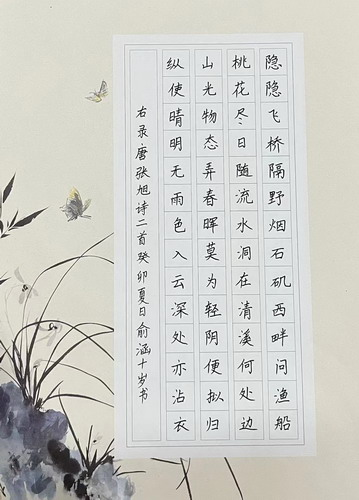 隐隐飞桥隔野烟石矶西畔问渔船
桃花尽日随流水洞在清溪何处边
山光物态弄春晖莫为轻阴便拟归
纵使晴明无雨色入云深处亦沾衣
右录唐张旭诗二首癸卯夏日俞涵十岁书